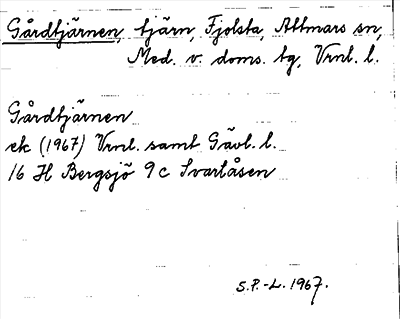 Gårdtjärnen, tjärn, Fjolsta, Attmars sn,
Med. v. doms. tg, Vrnl. l.
Gårdtjärnen
ek (1967) Vrnl. samt Gävl. l.
16 H Bergsjö 9c Svartåsen
S.P.-L. 1967.